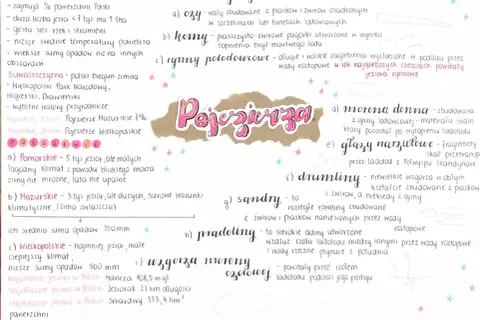 - zajmują 1/3 powierzchni Polski
- duża liczba jezior
- gęsta sieć rzek i strumieni
- niższe średnie temperatury powietrza
i większe sumy opadów niż na innych
obszarach
Suwalszczyzna - polski biegun zimna
- Wielkopolski Park Narodowy,
Wigierski, Drawieński
- wybitne walory przyrodnicze
Pojezierze Mazurskie
Pojezierze Wielkopolskie
a) Pomorskie - jezior, ale małych
łagodny klimat z powodu bliskiego morza
zimy nie mroźne, lata nie upalne
b) Mazurskie - 3 tys jezior, ale dużych, surowe warunki
klimatyczne, (zima zwłaszcza)
ich średnia suma opadów 550mm
c) Wielkopolskie - najmniej jezior, małe
cieplejszy klimat,
niższe sumy opadów 500 mm
Hańcza 108,5 m gł.
Jeziorak 27 km długości
Śniardwy 113,4 km²
powierzchni
Pojezierza
a) ozy - wały zbudowane z piasków i żwirów osadzonych
w szczelinach lub tunelach lodowcowych
b) kemy - piaszczysto-żwirowe pagórki utworzone w wyniku
topnienia brył martwego lodu
c) rynny polodowcowe - długie i wąskie zagłębienia wyżłobione w podłożu przez
wody roztopowe w ich najgłębszych częściach powstały
jeziora rynnowe
d) morena denna - zbudowana
z gliny lodowcowej - materiału skaln
który pozostał po wytopieniu lądolodu
e) głazy narzutowe - fragmenty
skał przetransp
przez lądolód z Półwyspu Skandynaw
f) drumliny - niewielkie wzgórza o obłym
kształcie zbudowane z piasków
i żwirów, a niekiedy z gliny
g) sandry - to
rozległe równiny zbudowane
z żwirów i piasków naniesionych przez wody
roztopowe
h) pradoliny - to szerokie doliny utworzone
wzdłuż czoła lądolodu przez wody roztopowe
i wody rzeczne płynące z południa
i) wzgórza moreny
czołowej - powstały przed czołem
lądolodu podczas jego postoju